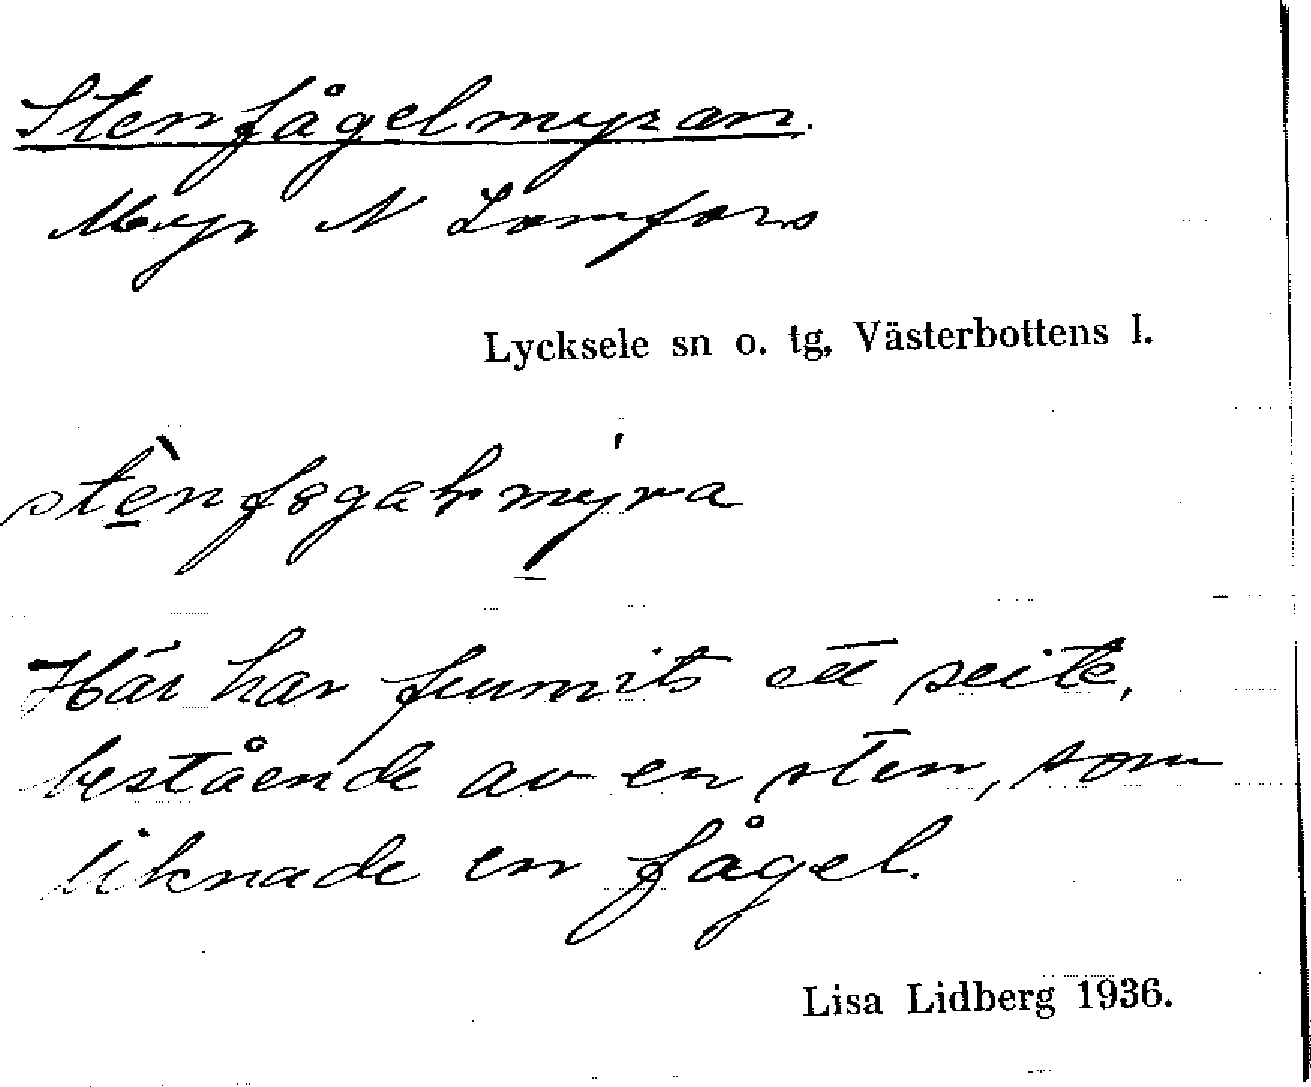 Stenfågelmyran.
Myr N Lomfors
Lycksele sn o. tg, Västerbottens l.
Här har funnits ett seite,
bestående av en sten, som
liknade en fågel.
Lisa Lidberg 1936.